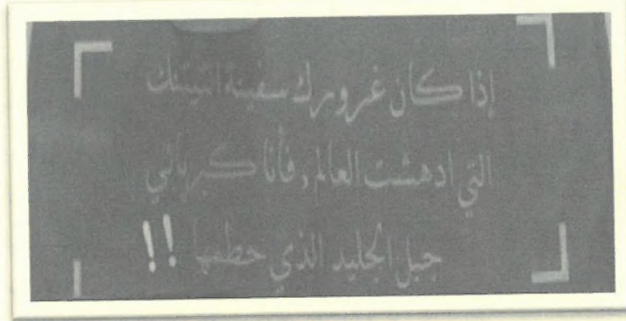 إذا كان غرورك سفينة اتيتنك
التي ادهشت العالم , فأنا كبريائي
جبل الجليد الذي حطمها !!